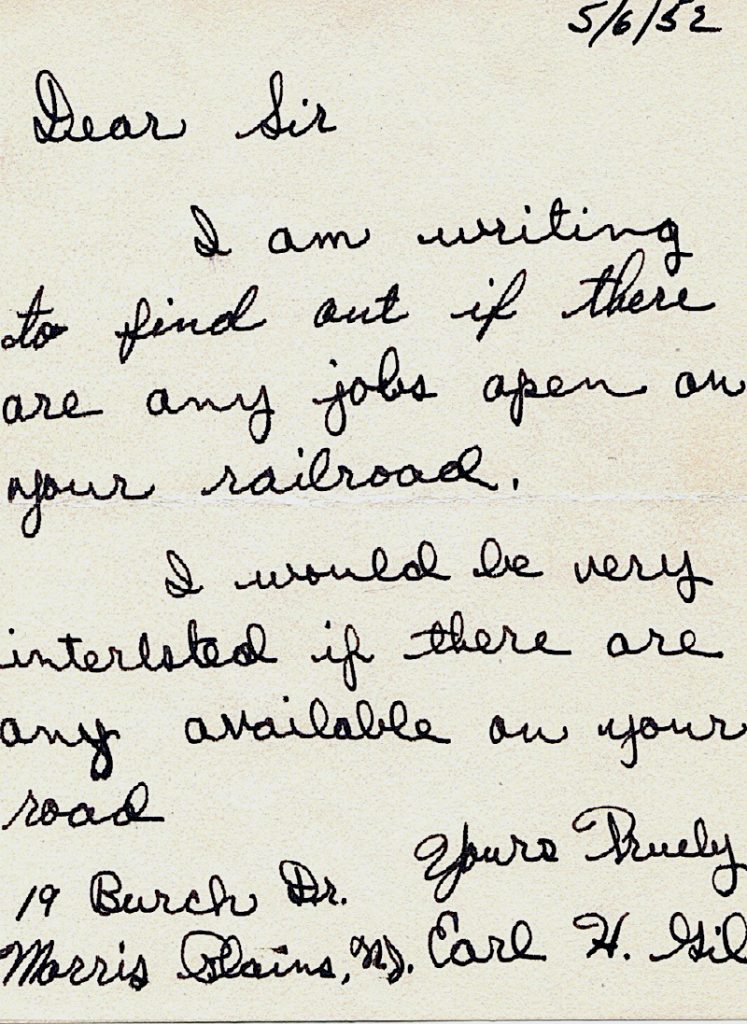 5/6/52
Dear Sir
I am writing
to find out if there
are any jobs open on
your railroad.
I would be very
interested if there are
any available on your
road
Yours Truely
19 Burch Dr.
Morris Plains, NJ. Earl H. Gil